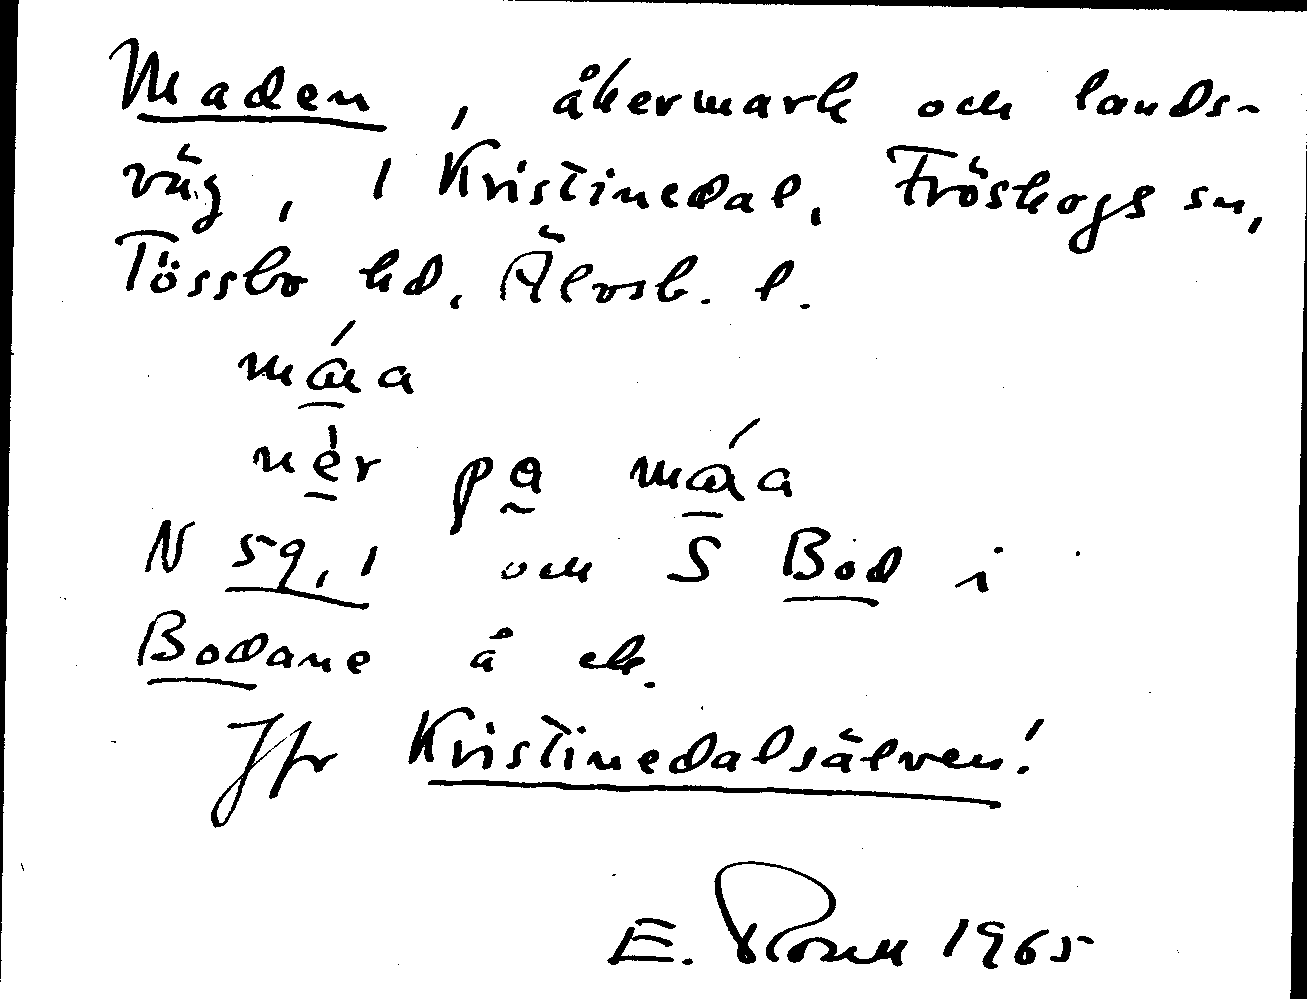 Maden, åkermark och lands-
väg, 1 Kristinedal, Fröskogs sn,
Tössbo hd, Älvsb. l.
máa
nèr pa máa
N 59,1 och S Bod i
Bodane å ek.
Jfr Kristinedalsälven!
E. 1965